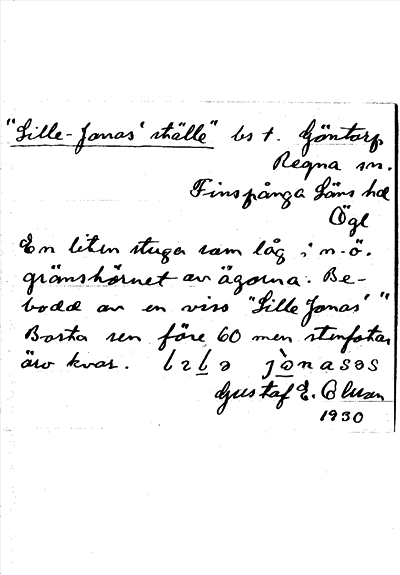 "Lille-Jonas' ställe" bs t. Göntorp
Regna sn.
Finspånga Läns hd
Ögl
En liten stuga som låg i n.ö.
gränshörnet av ägorna. Be-
bodd av en viss "Lille Jonas'"
Borta sen före 60 men stenfoten
äro kvar. jònasəs
Gustaf E. Olsson
1930